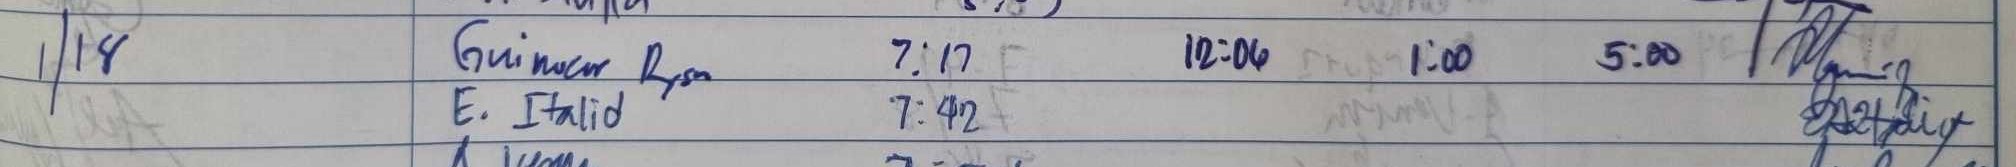 1/18 Guinocor Ryan 7:17 12:06 1:00 5:00
E. Italid 7:42